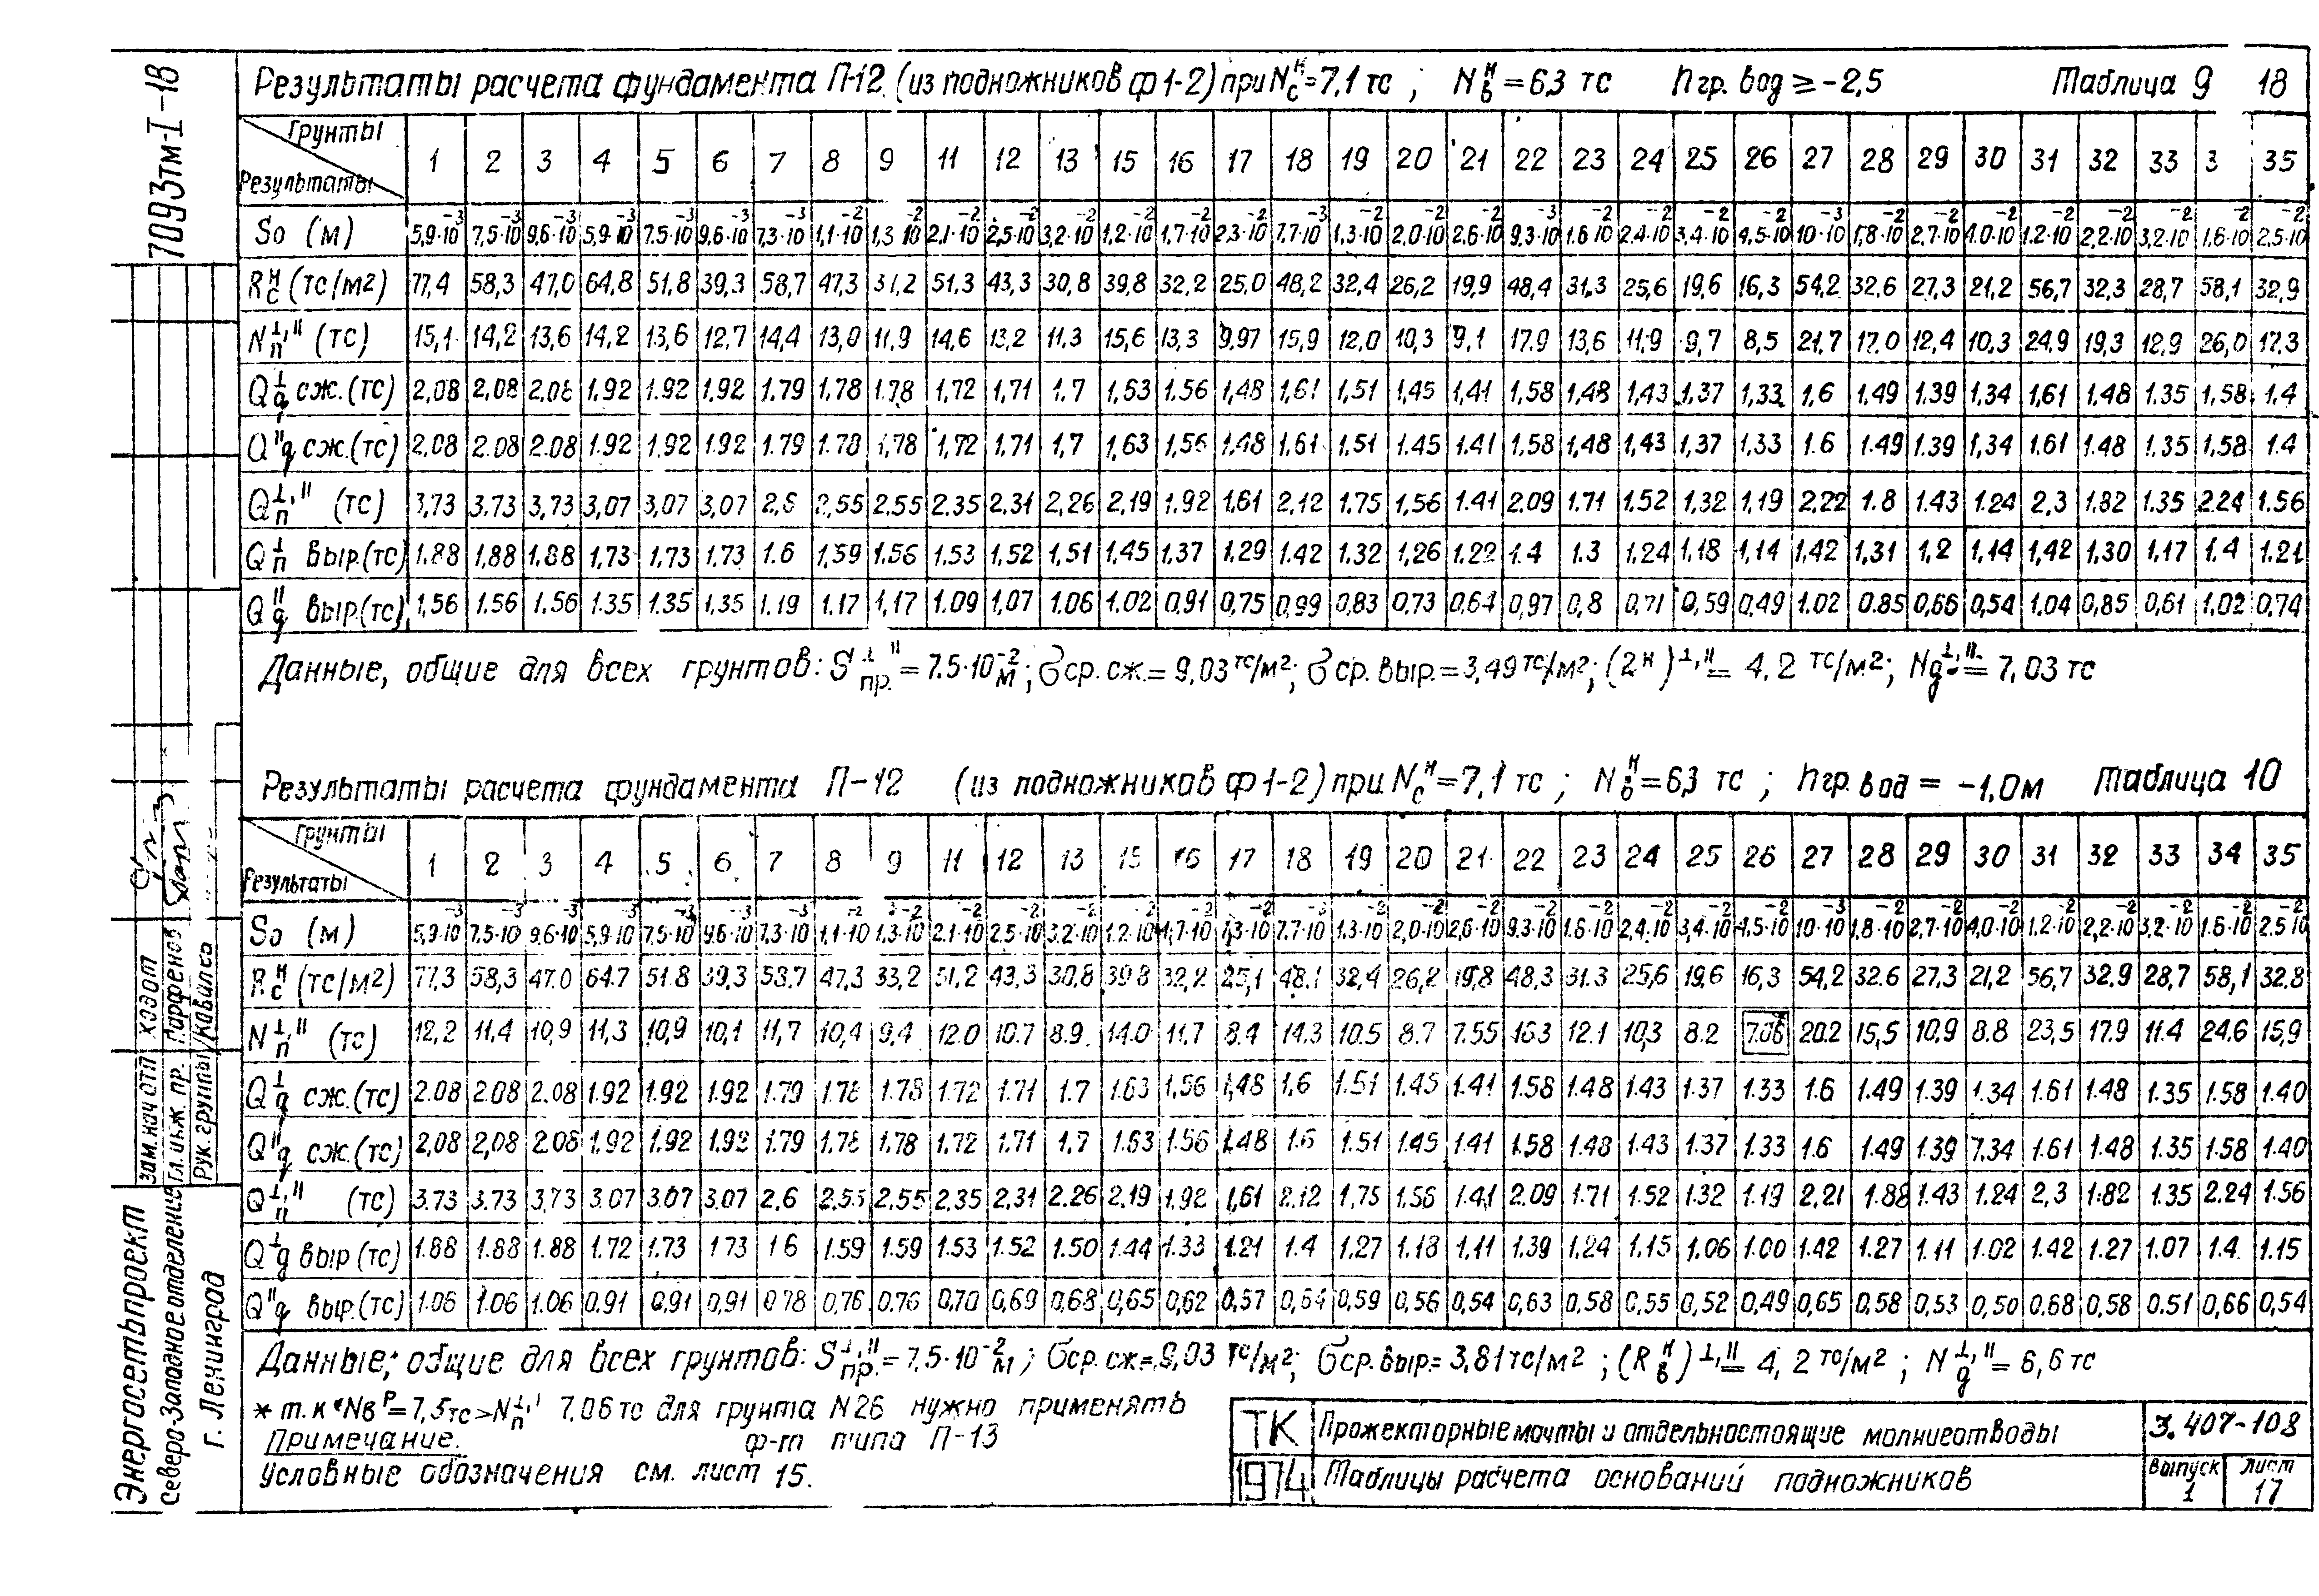 Результаты расчета фундамента П-12 (из подножников ф1-2) при Nсᴴ=7,1 тс ; Nвᴴ=6,3 тс hгр. вод ≥ -2,5 Таблица 9 18
Грунты 1 2 3 4 5 6 7 8 9 11 12 13 15 16 17 18 19 20 21 22 23 24 25 26 27 28 29 30 31 32 33 3 35
Результаты
So (м) 5,9·10⁻³ 7,5·10⁻³ 9,6·10⁻³ 5,9·10⁻³ 7.5·10⁻³ 9,6·10⁻³ 7,3·10⁻³ 1,1·10⁻² 1,3·10⁻² 2.1·10⁻² 2,5·10⁻² 3,2·10⁻² 1,2·10⁻² 1,7·10⁻² 2.3·10⁻² 7.7·10⁻³ 1.3·10⁻² 2.0·10⁻² 2.6·10⁻² 9.3·10⁻³ 1.6·10⁻² 2.4·10⁻² 3,4·10⁻² 4,5·10⁻² 10·10⁻³ 1,8·10⁻² 2.7·10⁻² 4.0·10⁻² 1.2·10⁻² 2,2·10⁻² 3,2·10⁻² 1.6·10⁻² 2.5·10⁻²
Rсᴴ (тс/м2) 77,4 58,3 47,0 64,8 51.8 39,3 58,7 47,3 31,2 51.3 43,3 30,8 39,8 32,2 25,0 48,2 32,4 26,2 19,9 48,4 31,3 25,6 19,6 16,3 54,2 32,6 27,3 21,2 56,7 32,3 28,7 58,1 32,9
Nп⊥,ıı (тс) 15,1 14,2 13,6 14,2 13,6 12,7 14,4 13,0 11,9 14,6 13,2 11.3 15,6 13,3 9,97 15,9 12,0 10,3 9,1 17.9 13,6 11,9 9,7 8,5 21,7 17.0 12,4 10,3 24,9 19,3 12,9 26,0 17,3
Qg⊥ сж. (тс) 2,08 2,08 2,08 1,92 1.92 1,92 1.79 1,78 1,78 1,72 1,71 1.7 1,63 1.56 1,48 1,61 1,51 1,45 1,41 1,58 1,48 1,43 1,37 1,33 1,6 1,49 1.39 1,34 1,61 1,48 1.35 1,58 1,4
Qgıı сж. (тс) 2,08 2.08 2.08 1.92 1,92 1,92 1.79 1.78 1,78 1,72 1,71 1,7 1,63 1,56 1.48 1,61 1,51 1.45 1.41 1,58 1,48 1,43 1,37 1,33 1.6 1.49 1.39 1,34 1.61 1.48 1.35 1,58 1.4
Qп⊥,ıı (тс) 3,73 3.73 3,73 3,07 3,07 3,07 2,6 2,55 2.55 2.35 2.31 2,26 2,19 1.92 1,61 2,12 1.75 1,56 1.41 2.09 1.71 1,52 1,32 1,19 2.22 1.8 1.43 1.24 2,3 1.82 1.35 2.24 1.56
Qп⊥ выр.(тс) 1.88 1,88 1.88 1,73 1,73 1,73 1.6 1,59 1.56 1.53 1,52 1,51 1,45 1,37 1.29 1.42 1.32 1,26 1.22 1.4 1.3 1,24 1,18 1,14 1,42 1,31 1,2 1,14 1,42 1,30 1,17 1.4 1.21
Qgıı выр.(тс) 1,56 1.56 1.56 1.35 1.35 1,35 1.19 1.17 1,17 1.09 1,07 1.06 1.02 0,91 0,75 0,99 0,83 0,73 0,64 0,97 0,8 0,71 0,59 0,49 1.02 0.85 0,66 0,54 1.04 0,85 0,61 1,02 0,74
Данные, общие для всех грунтов: Sпр.⊥ıı = 7.5·10⁻²м; σср. сж.= 9,03 тс/м²; σср. выр.= 3,49 тс/м²; (2ᴴ)⊥,ıı = 4,2 тс/м²; Ng⊥,ıı = 7,03 тс
Результаты расчета фундамента П-12 (из подножников ф1-2) при Nсᴴ=7,1 тс ; Nвᴴ=6,3 тс ; hгр. вод = -1,0м Таблица 10
Грунты 1 2 3 4 5 6 7 8 9 11 12 13 15 16 17 18 19 20 21 22 23 24 25 26 27 28 29 30 31 32 33 34 35
Результаты
So (м) 5,9·10⁻³ 7.5·10⁻³ 9.6·10⁻³ 5,9·10⁻³ 7.5·10⁻³ 9.6·10⁻³ 7,3·10⁻³ 1,1·10⁻² 1,3·10⁻² 2.1·10⁻² 2.5·10⁻² 3,2·10⁻² 1.2·10⁻² 1,7·10⁻² 1,3·10⁻² 7.7·10⁻³ 1.3·10⁻² 2,0·10⁻² 2,6·10⁻² 9.3·10⁻² 1.6·10⁻² 2,4·10⁻² 3,4·10⁻² 4.5·10⁻² 10·10⁻³ 1,8·10⁻² 2,7·10⁻² 4,0·10⁻² 1.2·10⁻² 2,2·10⁻² 3,2·10⁻² 1.6·10⁻² 2.5·10⁻²
Rсᴴ (тс/м2) 77,3 58,3 47.0 64.7 51.8 39,3 58.7 47,3 33,2 51,2 43,3 30,8 39.8 32,2 25,1 48.1 32,4 26,2 19,8 48,3 31.3 25,6 19,6 16,3 54,2 32.6 27.3 21,2 56,7 32.9 28,7 58,1 32.8
Nп⊥,ıı (тс) 12,2 11.4 10,9 11,3 10,9 10,1 11,7 10,4 9,4 12.0 10.7 8.9 14.0 11.7 8.4 14.3 10.5 8.7 7.55 16.3 12.1 10,3 8.2 7.06* 20.2 15,5 10,9 8.8 23,5 17.9 11.4 24.6 15,9
Qg⊥ сж.(тс) 2.08 2.08 2,08 1.92 1.92 1.92 1.79 1.78 1.78 1.72 1.71 1.7 1.63 1,56 1,48 1,6 1.51 1.45 1.41 1.58 1.48 1.43 1.37 1.33 1.6 1.49 1.39 1.34 1.61 1.48 1.35 1.58 1.40
Qgıı сж.(тс) 2,08 2,08 2.08 1.92 1.92 1.92 1.79 1.78 1.78 1.72 1.71 1.7 1.63 1.56 1.48 1.6 1.51 1.45 1.41 1.58 1.48 1.43 1.37 1.33 1.6 1.49 1.39 7.34 1.61 1.48 1.35 1.58 1.40
Qп⊥,ıı (тс) 3.73 3.73 3,73 3.07 3.07 3,07 2,6 2,55 2,55 2.35 2,31 2.26 2,19 1,92 1,61 2,12 1,75 1.56 1.41 2.09 1.71 1.52 1.32 1.19 2.21 1.88 1.43 1.24 2,3 1.82 1.35 2.24 1.56
Qg⊥ выр (тс) 1.88 1.88 1.88 1.72 1.73 1 73 1 6 1.59 1.59 1.53 1.52 1.50 1.44 1.33 1.21 1.4 1,27 1.18 1,11 1.39 1,24 1.15 1,06 1.00 1.42 1.27 1.11 1.02 1.42 1.27 1.07 1.4 1.15
Qgıı выр.(тс) 1.06 1.06 1.06 0.91 0,91 0,91 0 78 0,76 0.76 0,70 0,69 0.68 0,65 0,62 0,57 0,64 0,59 0,56 0,54 0,63 0.58 0.55 0,52 0,49 0,65 0,58 0,53 0,50 0.68 0,58 0.51 0,66 0,54
Данные, общие для всех грунтов: Sпр.⊥,ıı = 7,5·10⁻²м; σср. сж= 9,03 тс/м²; σср. выр= 3,81тс/м² ; (Rвᴴ)⊥,ıı = 4,2 тс/м² ; Ng⊥,ıı = 6,6 тс
* т.к Nвᴾ = 7,5тс > Nп⊥,ıı 7,06 тс для грунта N26 нужно применять
ф-т типа П-13
Примечание.
Условные обозначения см. лист 15.
ТК Прожекторные мачты и отдельностоящие молниеотводы 3.407-108
1974 Таблицы расчета оснований подножников Выпуск 1 Лист 17
7093тм-I-18
Зам.нач отп Ходот
Гл. инж. пр. Парфенов
Рук. группы
Энергосетьпроект
Северо-Западное отделение
г. Ленинград